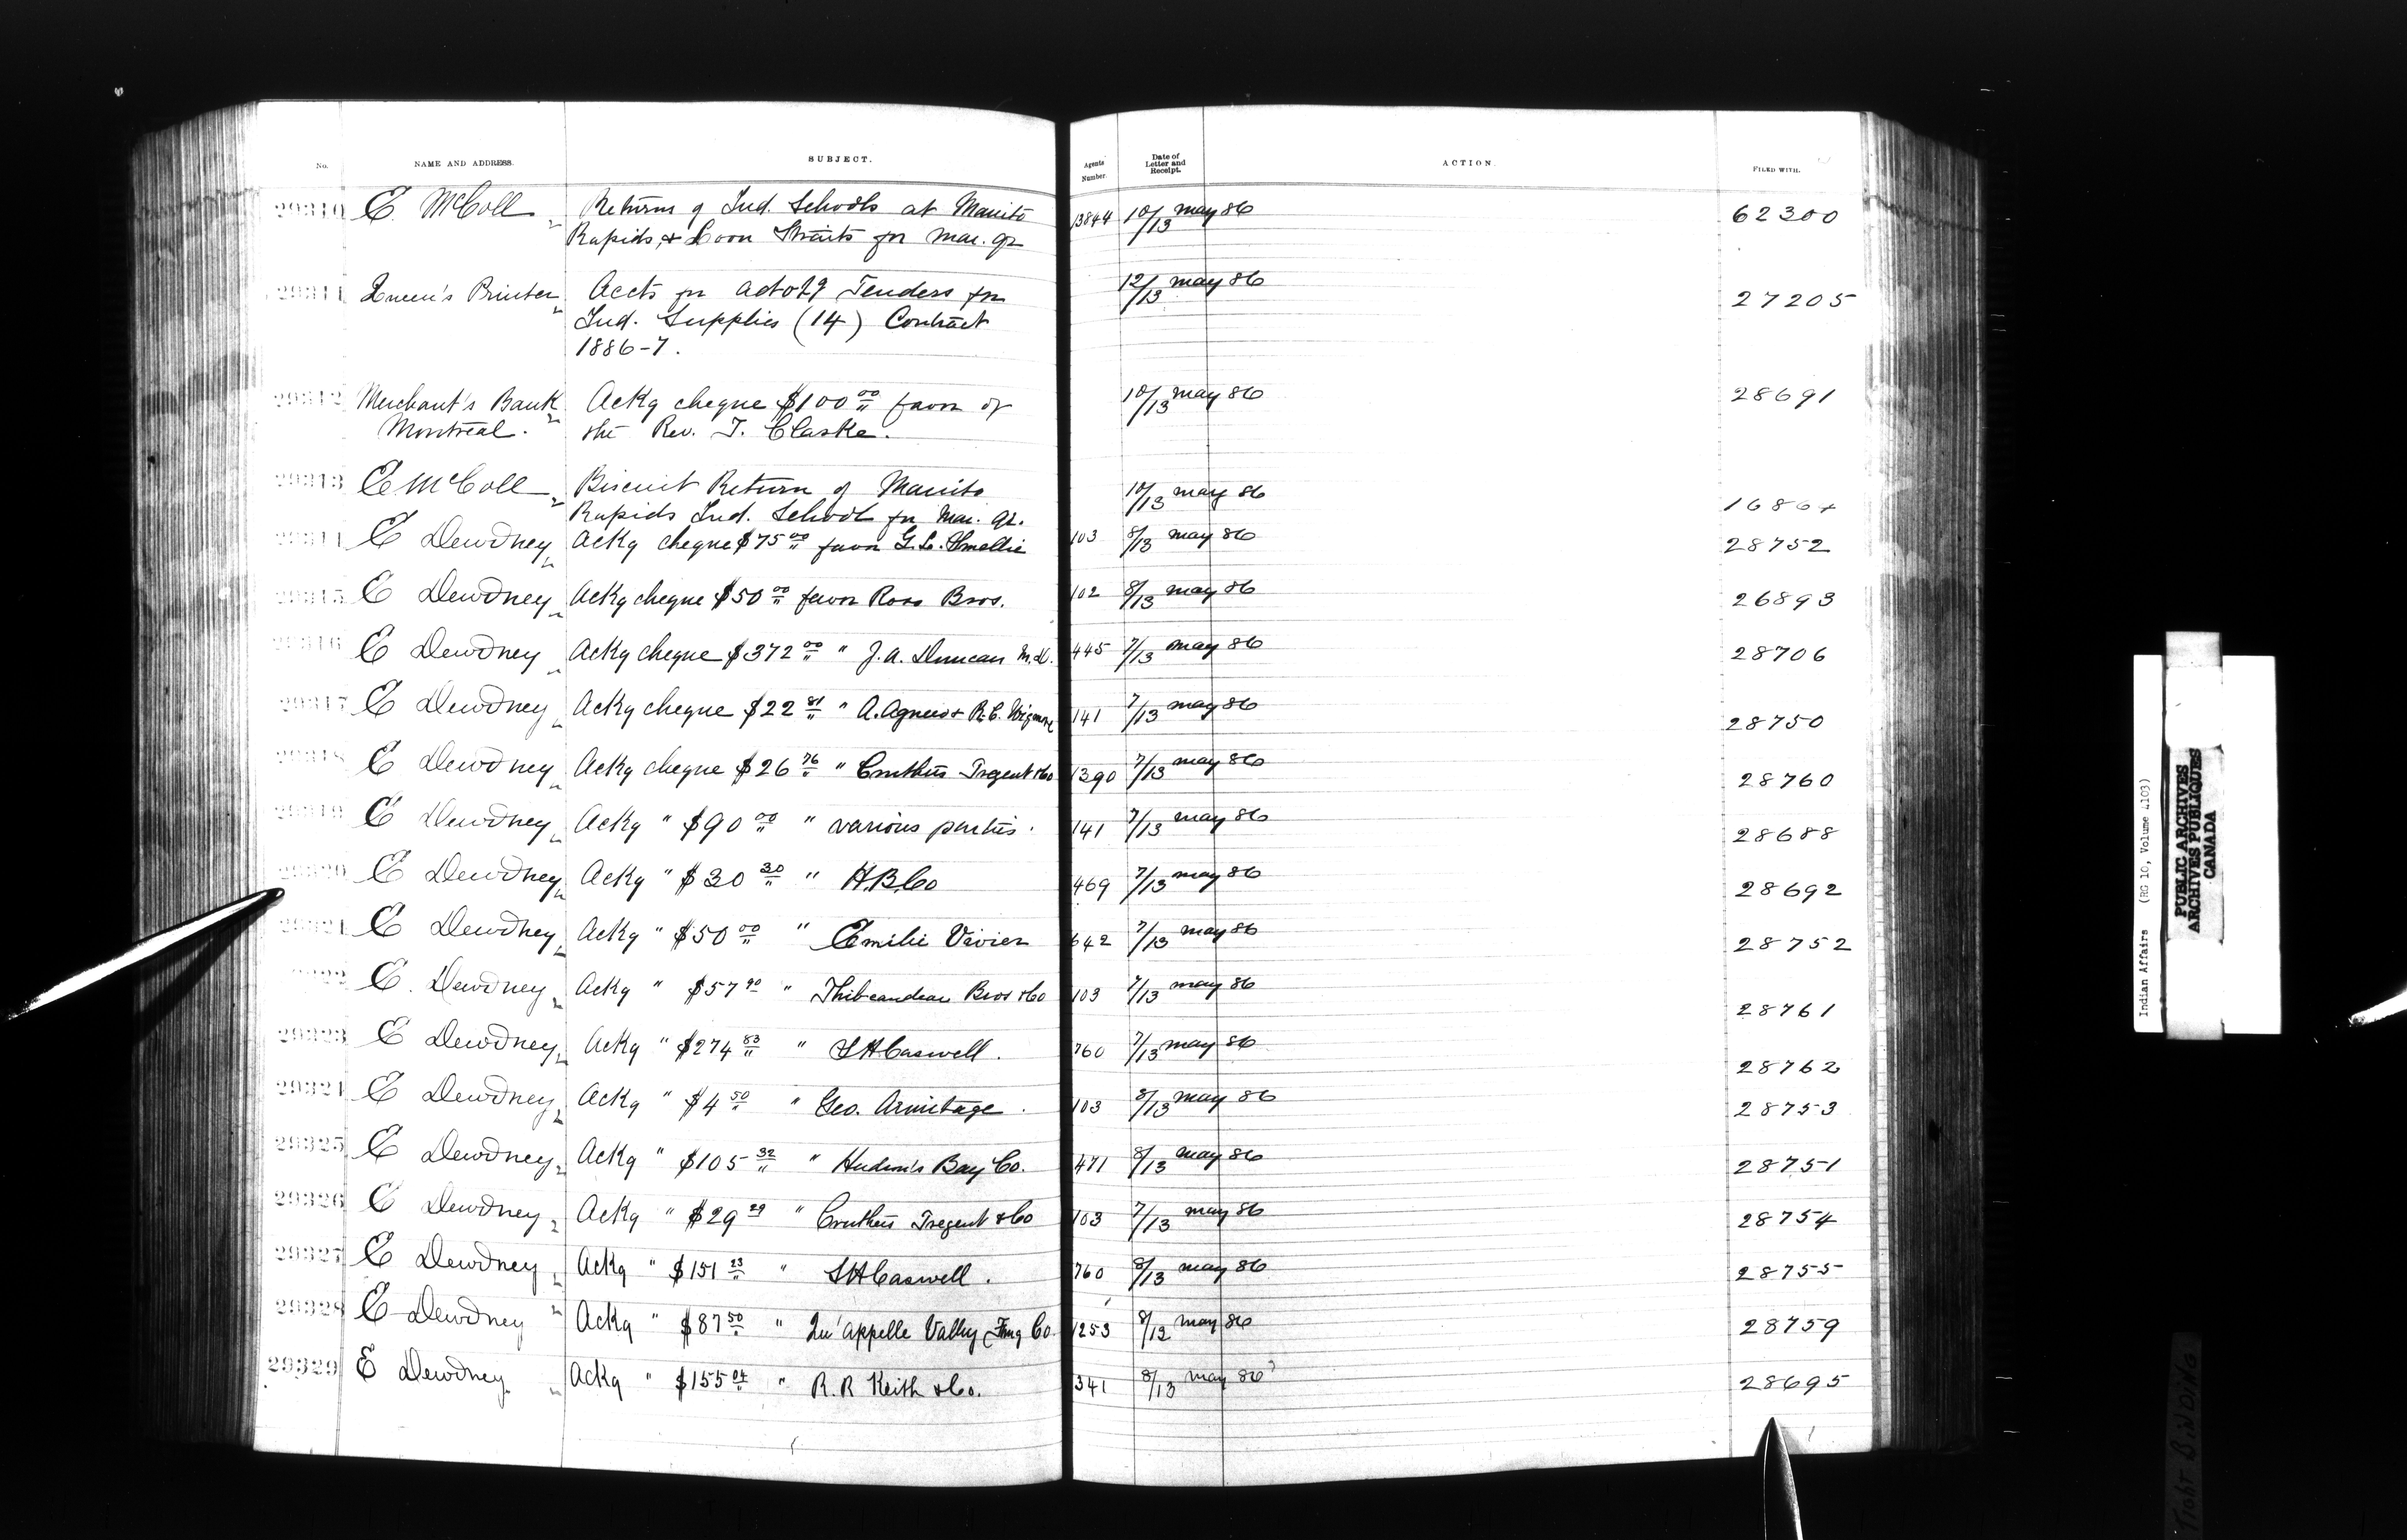 No. NAME AND ADDRESS. SUBJECT. Agents Number. Date of Letter and Receipt. ACTION. FILED WITH.
29310 E. McColl Returns of Ind. Schools at Manito 13844 10/13 May 86 62300
Rapids, & Loon Straits for Mar. qr
29311 Queen's Printer Accts for advtg Tenders for 12/13 May 86 27205
Ind. Supplies (14) Contract
1886-7.
29312 Merchant's Bank Ackg cheque $100 00 favor of 10/13 May 86 28691
Montreal. the Rev. J. Clarke.
29313 E McColl Biscuit Return of Manito 10/13 May 86 16864
Rapids Ind. School for Mar. qr.
29314 E Dewdney Ackg cheque $75 00 favor G. L. Smellie 103 8/13 May 86 28752
29315 E Dewdney Ackg cheque $50 00 favor Ross Bros. 102 8/13 May 86 26893
29316 E Dewdney Ackg cheque $372 00 " J. A. Duncan M.D. 445 7/13 May 86 28706
29317 E Dewdney Ackg cheque $22 81 " A. Agnew & R. C. Wigmore 141 7/13 May 86 28750
29318 E Dewdney Ackg cheque $26 76 " Cruthers Tregent & Co 1390 7/13 May 86 28760
29319 E Dewdney Ackg " $90 00 " various parties. 141 7/13 May 86 28688
29320 E Dewdney Ackg " $30 30 " H.B.Co 469 7/13 May 86 28692
29321 E Dewdney Ackg " $50 00 " Emilie Vivier 642 7/13 May 86 28752
29322 E. Dewdney Ackg " $57 90 " Thibeaudeau Bros & Co 103 7/13 May 86 28761
29323 E Dewdney Ackg " $274 83 " S H Caswell. 760 7/13 May 86 28762
29324 E Dewdney Ackg " $4 50 " Geo. Armitage. 103 8/13 May 86 28753
29325 E Dewdney Ackg " $105 32 " Hudson's Bay Co. 471 8/13 May 86 28751
29326 E Dewdney Ackg " $29 29 " Cruthers Tregent & Co 103 7/13 May 86 28754
29327 E Dewdney Ackg " $151 23 " S H Caswell. 760 8/13 May 86 28755
29328 E Dewdney Ackg " $87 50 " Qu'appelle Valley Fmg Co. 1253 8/13 May 86 28759
29329 E Dewdney Ackg " $155 04 " R. R Keith & Co. 341 8/13 May 86 28695
Indian Affairs (RG 10, Volume 4103)
PUBLIC ARCHIVES
ARCHIVES PUBLIQUES
CANADA
TIGHT BINDING